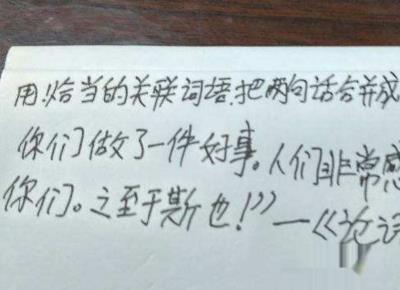 用恰当的关联词语,把两句话合并成
你们做了一件好事。人们非常感
你们。之至于斯也!”—《论语